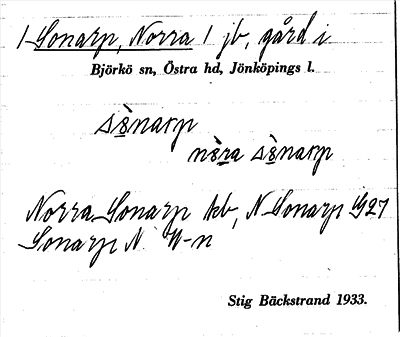 / Sonarp, Norra / jb, gård i
Björkö sn, Östra hd, Jönköpings l.
sònarp
nòra sònarp
Norra Sonarp kb, N Sonarp G27
Sonarp N.
Stig Bäckstrand 1933.